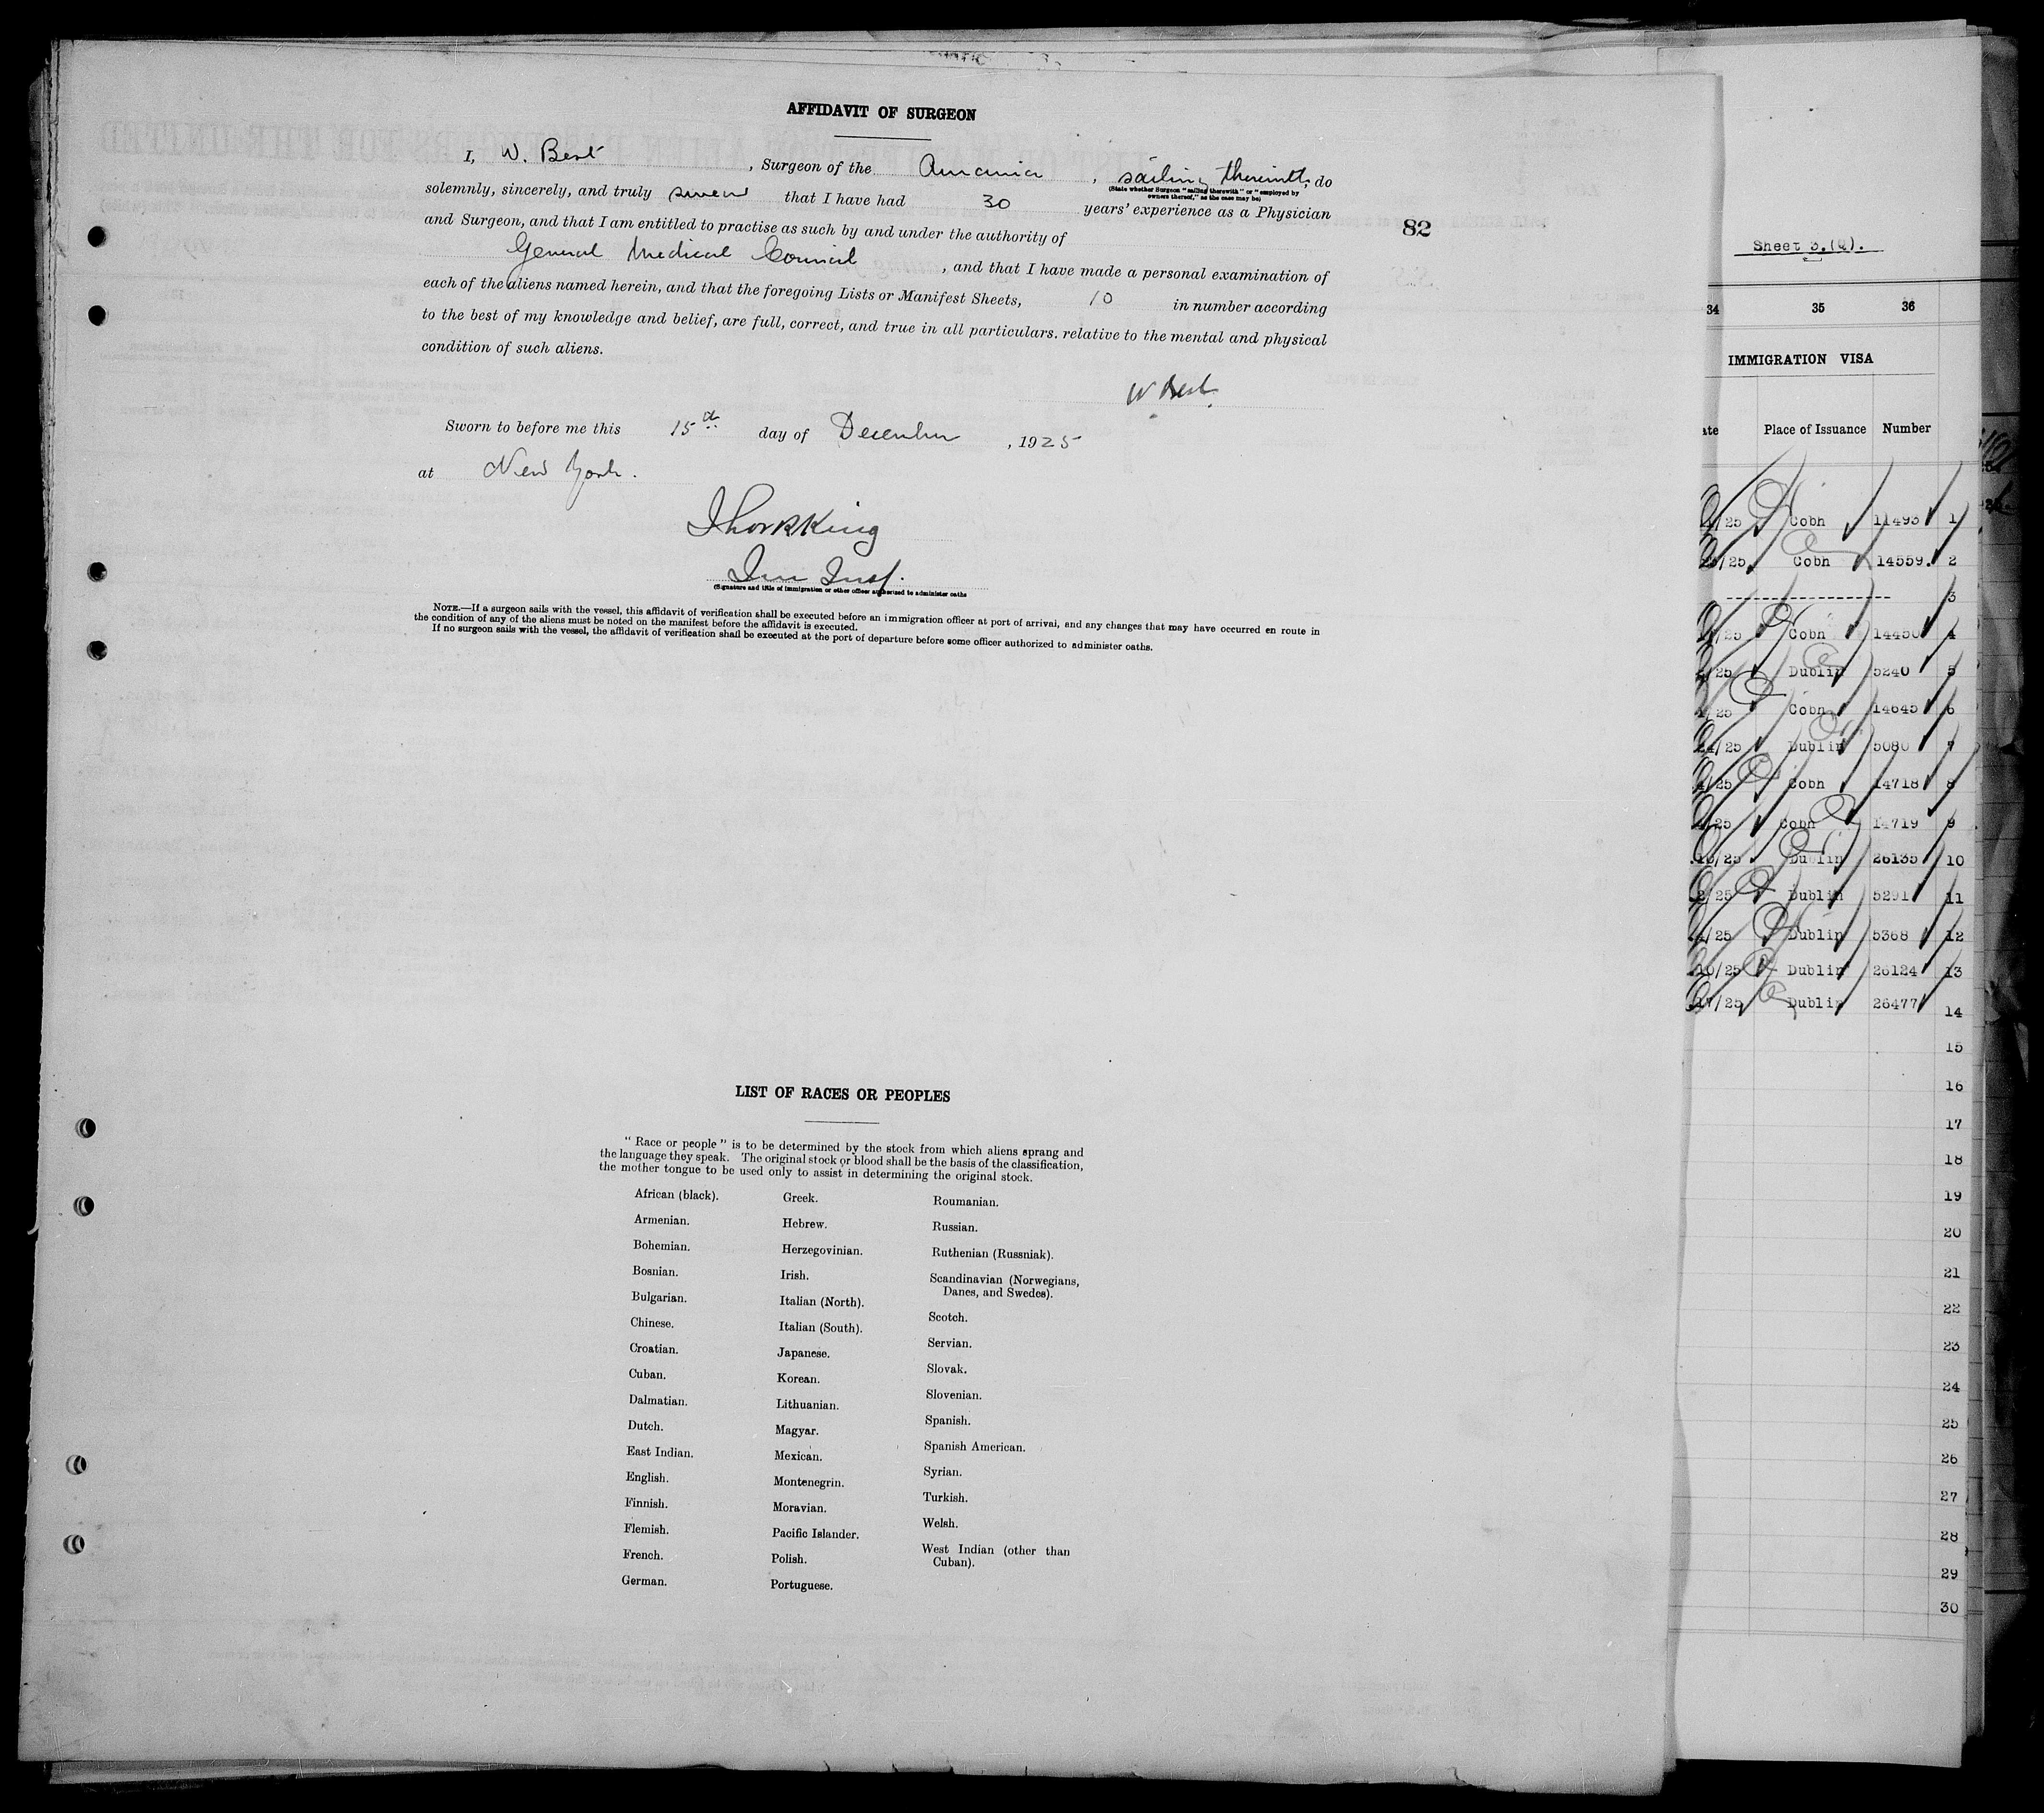 AFFIDAVIT OF SURGEON
I, W. Best, Surgeon of the Aurania, sailing therewith, do
(State whether Surgeon "sailing therewith" or "employed by
owners thereof," as the case may be)
solemnly, sincerely, and truly swear that I have had 30 years' experience as a Physician
and Surgeon, and that I am entitled to practise as such by and under the authority of
General Medical Council, and that I have made a personal examination of
each of the aliens named herein, and that the foregoing Lists or Manifest Sheets, 10 in number according
to the best of my knowledge and belief, are full, correct, and true in all particulars. relative to the mental and physical
condition of such aliens.
W Best.
Sworn to before me this 15th day of December, 1925
at New York.
King
Imm Insp.
(Signature and title of immigration or other officer authorized to administer oaths
NOTE.—If a surgeon sails with the vessel, this affidavit of verification shall be executed before an immigration officer at port of arrival, and any changes that may have occurred en route in
the condition of any of the aliens must be noted on the manifest before the affidavit is executed.
If no surgeon sails with the vessel, the affidavit of verification shall be executed at the port of departure before some officer authorized to administer oaths.
82
LIST OF RACES OR PEOPLES
"Race or people" is to be determined by the stock from which aliens sprang and
the language they speak. The original stock or blood shall be the basis of the classification,
the mother tongue to be used only to assist in determining the original stock.
African (black).
Armenian.
Bohemian.
Bosnian.
Bulgarian.
Chinese.
Croatian.
Cuban.
Dalmatian.
Dutch.
East Indian.
English.
Finnish.
Flemish.
French.
German.
Greek.
Hebrew.
Herzegovinian.
Irish.
Italian (North).
Italian (South).
Japanese.
Korean.
Lithuanian.
Magyar.
Mexican.
Montenegrin.
Moravian.
Pacific Islander.
Polish.
Portuguese.
Roumanian.
Russian.
Ruthenian (Russniak).
Scandinavian (Norwegians,
Danes, and Swedes).
Scotch.
Servian.
Slovak.
Slovenian.
Spanish.
Spanish American.
Syrian.
Turkish.
Welsh.
West Indian (other than
Cuban).
Sheet 3.(Q).
34 35 36
IMMIGRATION VISA
Place of Issuance Number
/25 Cobh 11493 1
/25 Cobh 14559. 2
3
/25 Cobh 14450 4
/25 Dublin 5240 5
/25 Cobh 14645 6
24/25 Dublin 5080 7
/25 Cobh 14718 8
/25 Cobh 14719 9
/25 Dublin 26135 10
/25 Dublin 5291 11
/25 Dublin 5368 12
10/25 Dublin 26124 13
17/25 Dublin 26477 14
15
16
17
18
19
20
21
22
23
24
25
26
27
28
29
30